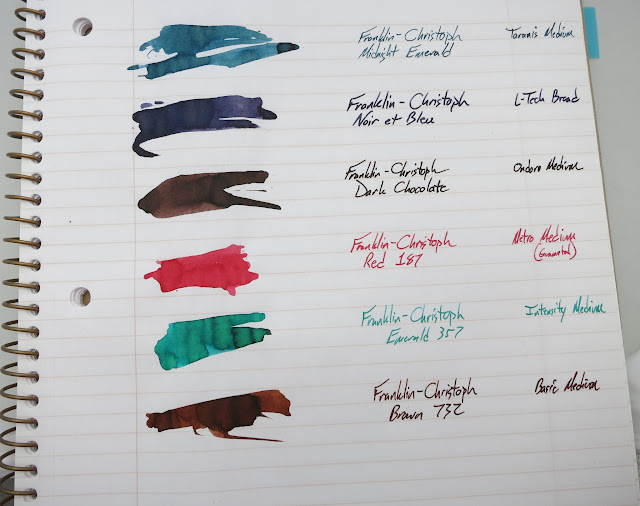 Franklin-Christoph
Midnight Emerald
Taranis Medium
Franklin-Christoph
Noir et Bleu
L-Tech Broad
Franklin-Christoph
Dark Chocolate
Ondoro Medium
Franklin-Christoph
Red 187
Metro Medium
(Gunmetal)
Franklin-Christoph
Emerald 357
Intensity Medium
Franklin-Christoph
Brown 732
Basic Medium